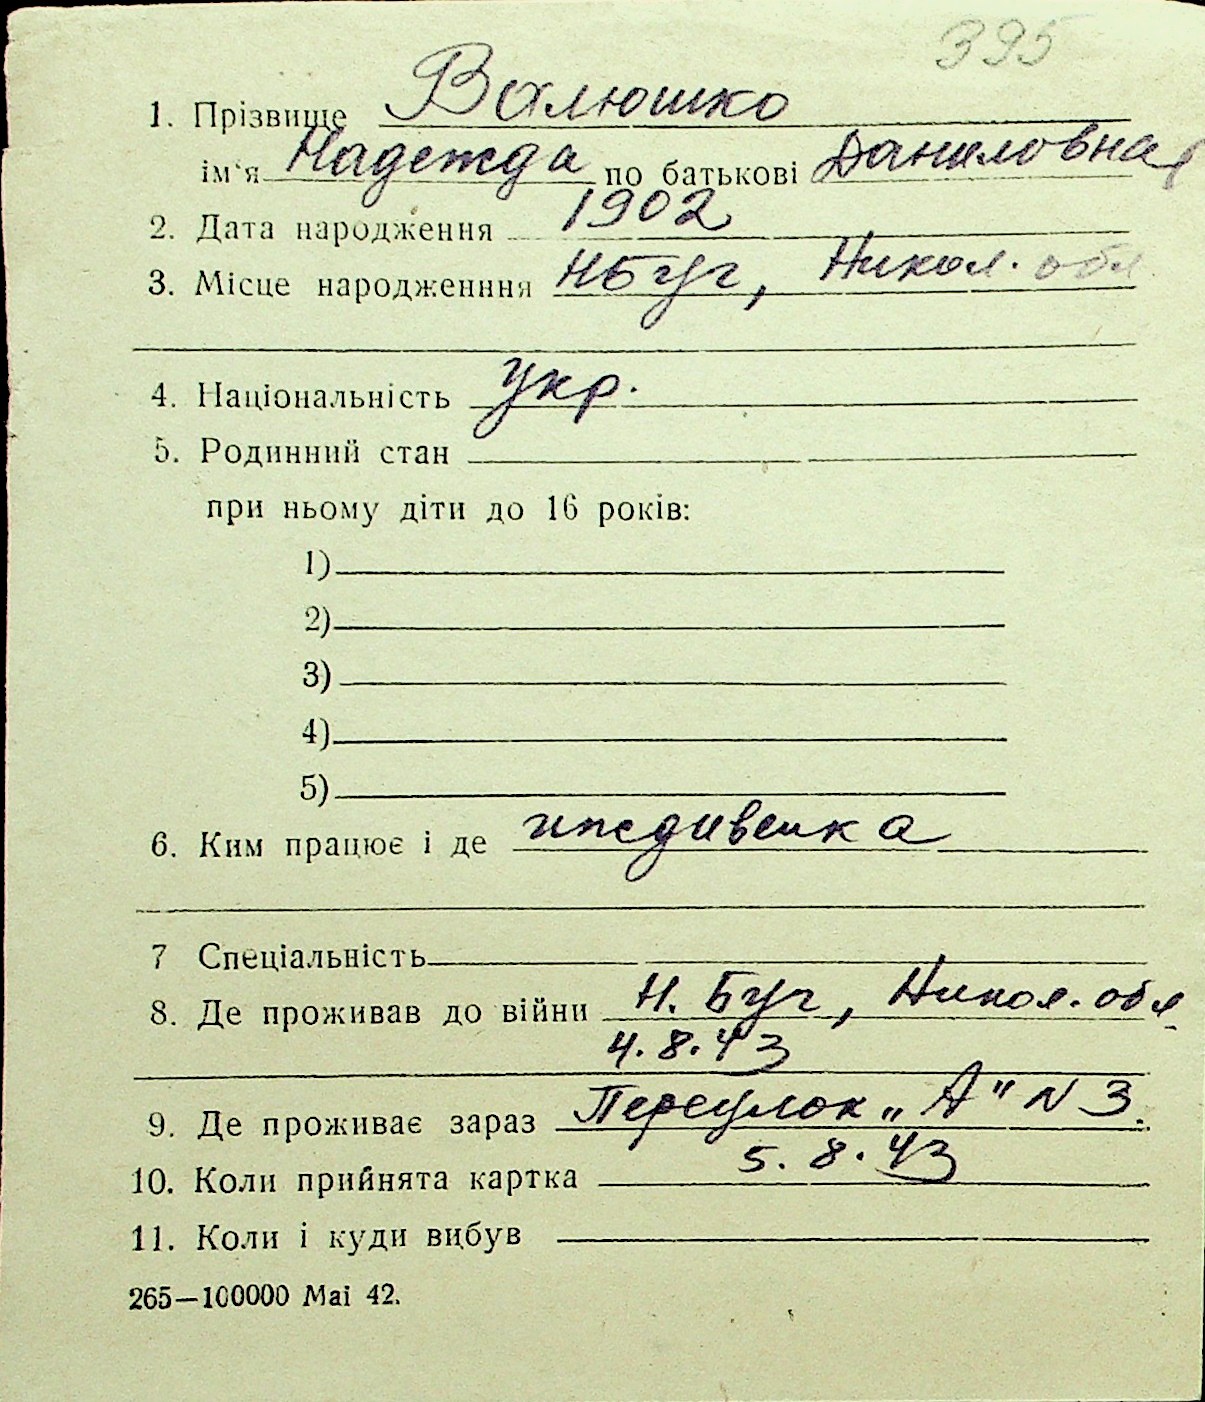 395
1. Прізвище Валюшко
ім'я Надежда по батькові Даниловна
2. Дата народження 1902
3. Місце народженння НБуг, Никол. обл
4. Національність укр.
5. Родинний стан
при ньому діти до 16 років:
1)
2)
3)
4)
5)
6. Ким працює і де иждивенка
7 Спеціальність
8. Де проживав до війни Н. Буг, Никол. обл
4.8.43
9. Де проживає зараз Переулок „А" N 3.
10. Коли прийнята картка 5. 8. 43
11. Коли і куди вибув
265—100000 Mai 42.